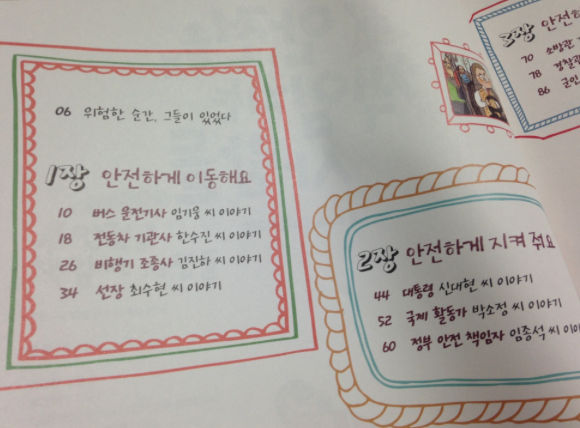 06 위험한 순간, 그들이 있었다
1장 안전하게 이동해요
10 버스 운전기사 임기웅 씨 이야기
18 전동차 기관사 한수진 씨 이야기
26 비행기 조종사 김진하 씨 이야기
34 선장 최수현 씨 이야기
2장 안전하게 지켜 줘요
44 대통령 신대현 씨 이야기
52 국제 활동가 박소정 씨 이야기
60 정부 안전 책임자 임종석 씨 이야
3장 안전하
70 소방관
78 경찰관
86 군인